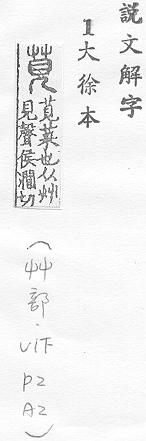 説文解字
1大徐本
莧 莧菜也从艸
見聲侯澗切
(艸部·
P2
A2
)